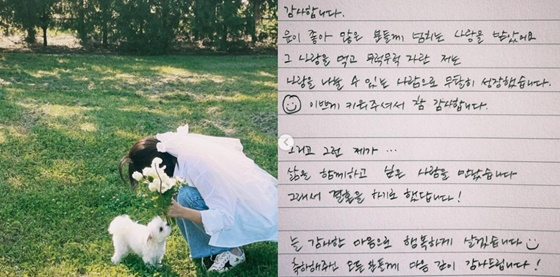 감사합니다.
운이 좋아 많은 분들께 넘치는 사랑을 받았어요
그 사랑을 먹고 무럭무럭 자란 저는
사랑을 나눌 수 있는 사람으로 무탈히 성장했습니다.
이쁘게 키워주셔서 참 감사합니다.
그리고 그런 제가 ...
삶을 함께하고 싶은 사람을 만났습니다
그래서 결혼을 하기로 했답니다!
늘 감사한 마음으로 행복하게 살겠습니다
축하해주신 모든 분들께 다음 같이 감사드립니다!